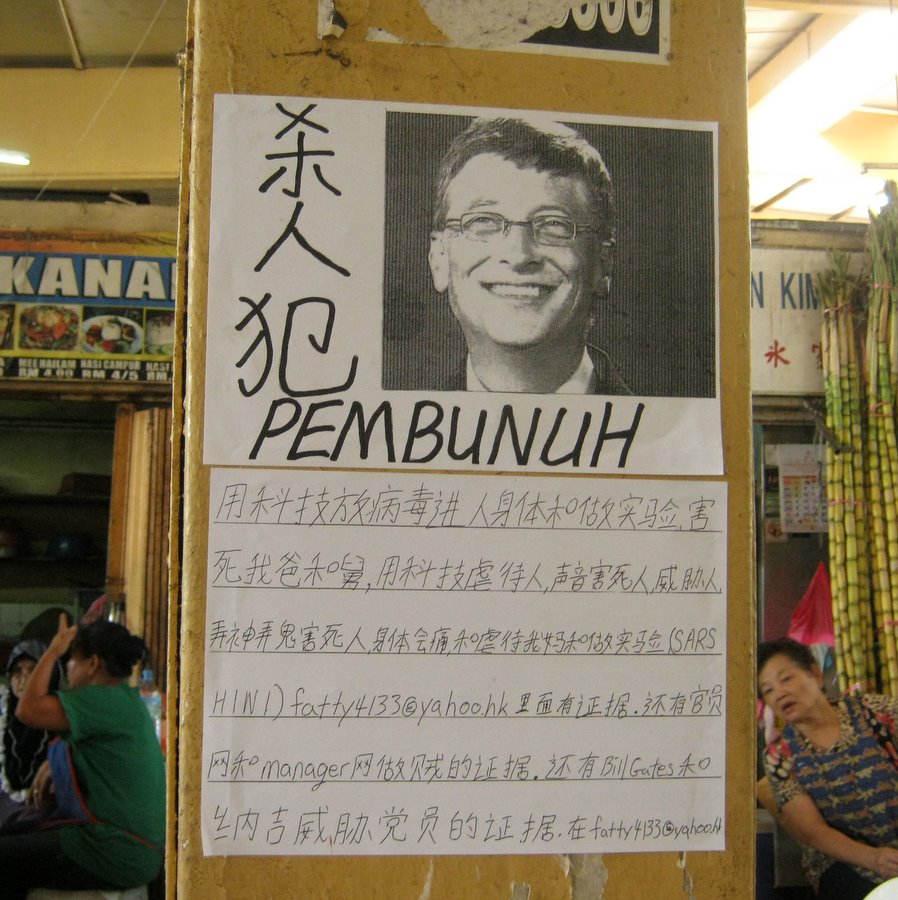 杀人犯
PEMBUNUH
用科技放病毒进人身体和做实验,害
死我爸和舅,用科技虐待人,声音害死人,威胁人,
弄神弄鬼害死人,身体会痛,和虐待我妈和做实验(SARS
H1N1) fatty4133@yahoo.hk 里面有证据.还有官员
网和manager网做贼的证据.还有Bill Gates和
纳吉威胁党员的证据.在fatty4133@yahoo.h
KANA
MEE HAILAM NASI CAMPUR NASI
RM 4.00 RM 4/5 RM
N KIM